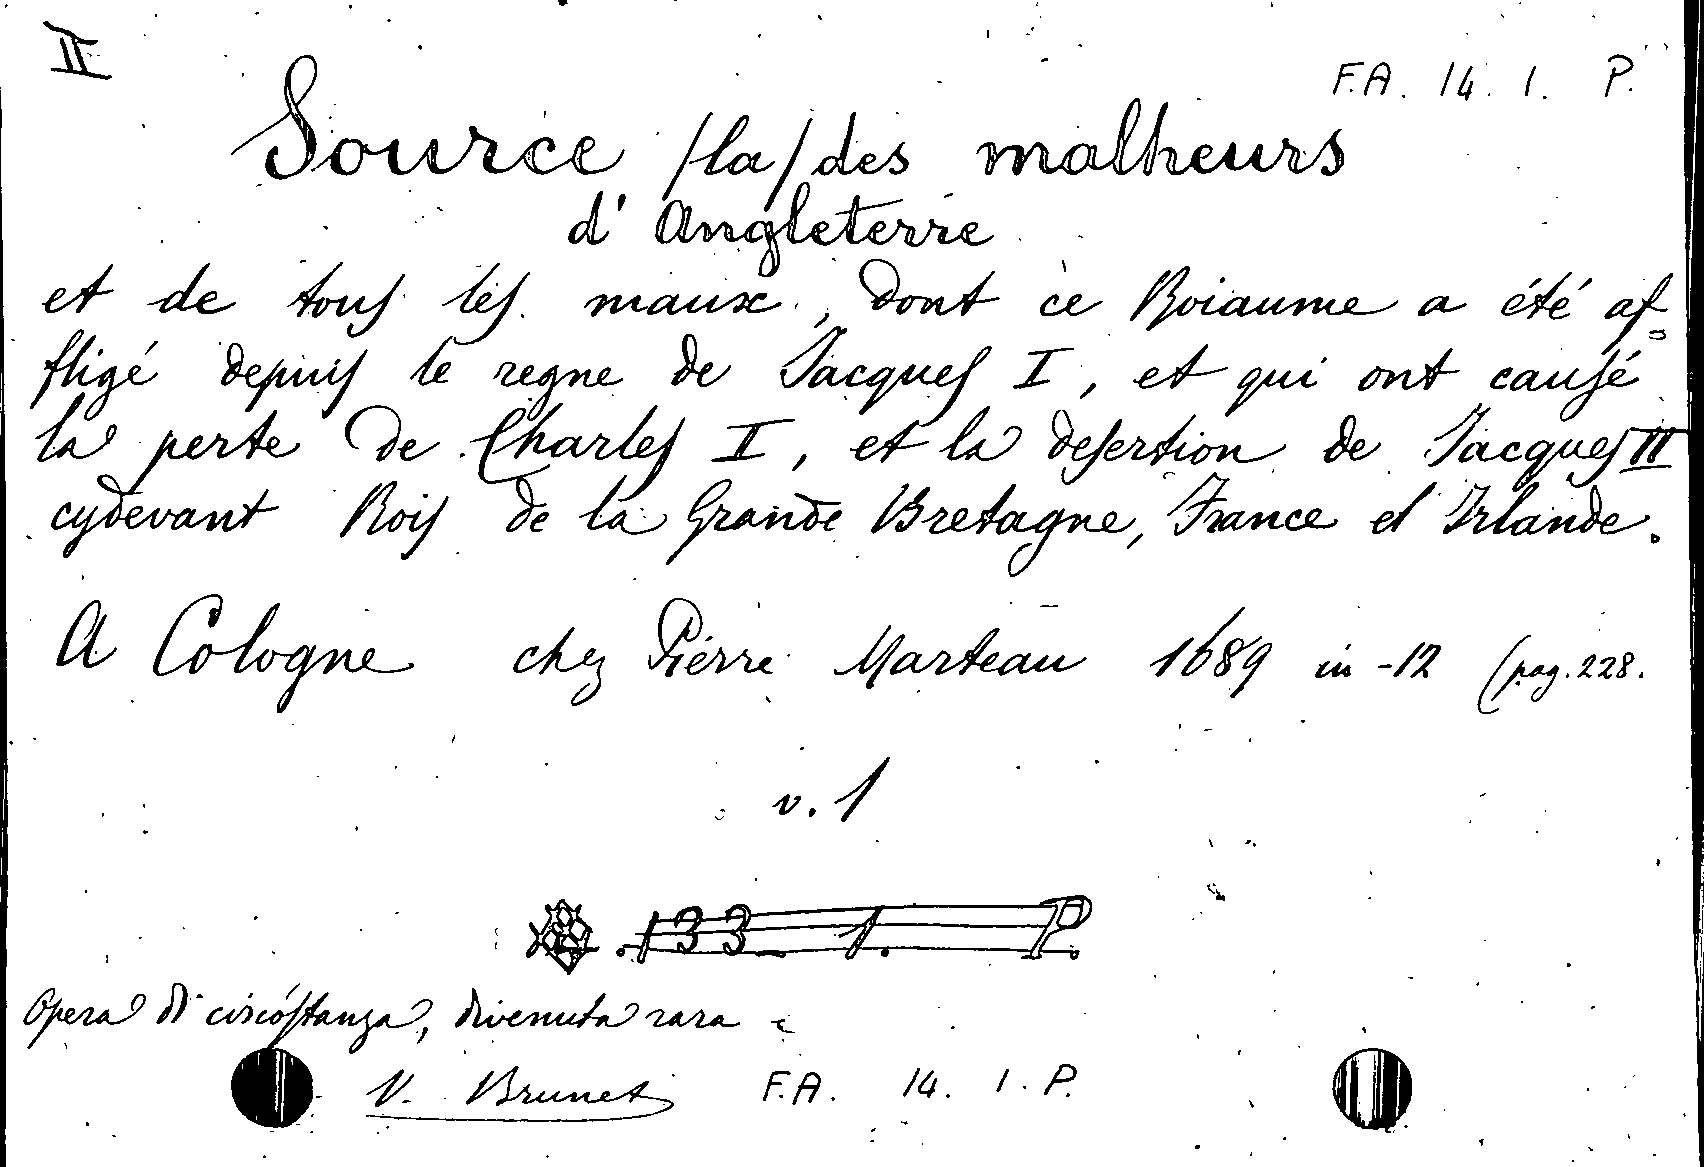 II
F.A. 14. 1. P.
Source /la/ des malheurs
d'Angleterre
et de tous les maux, dont ce Roiaume a été af-
fligé depuis le regne de Jacques I, et qui ont causé
la perte de Charles I, et la desertion de Jacques II
cydevant Rois de la Grande Bretagne, France et Irlande.
A Cologne chez Pierre Marteau 1689 in-12 (pag. 228.
v. 1
133 1. P.
Opera di circostanza, divenuta rara
V. Brunet F.A. 14. 1. P.